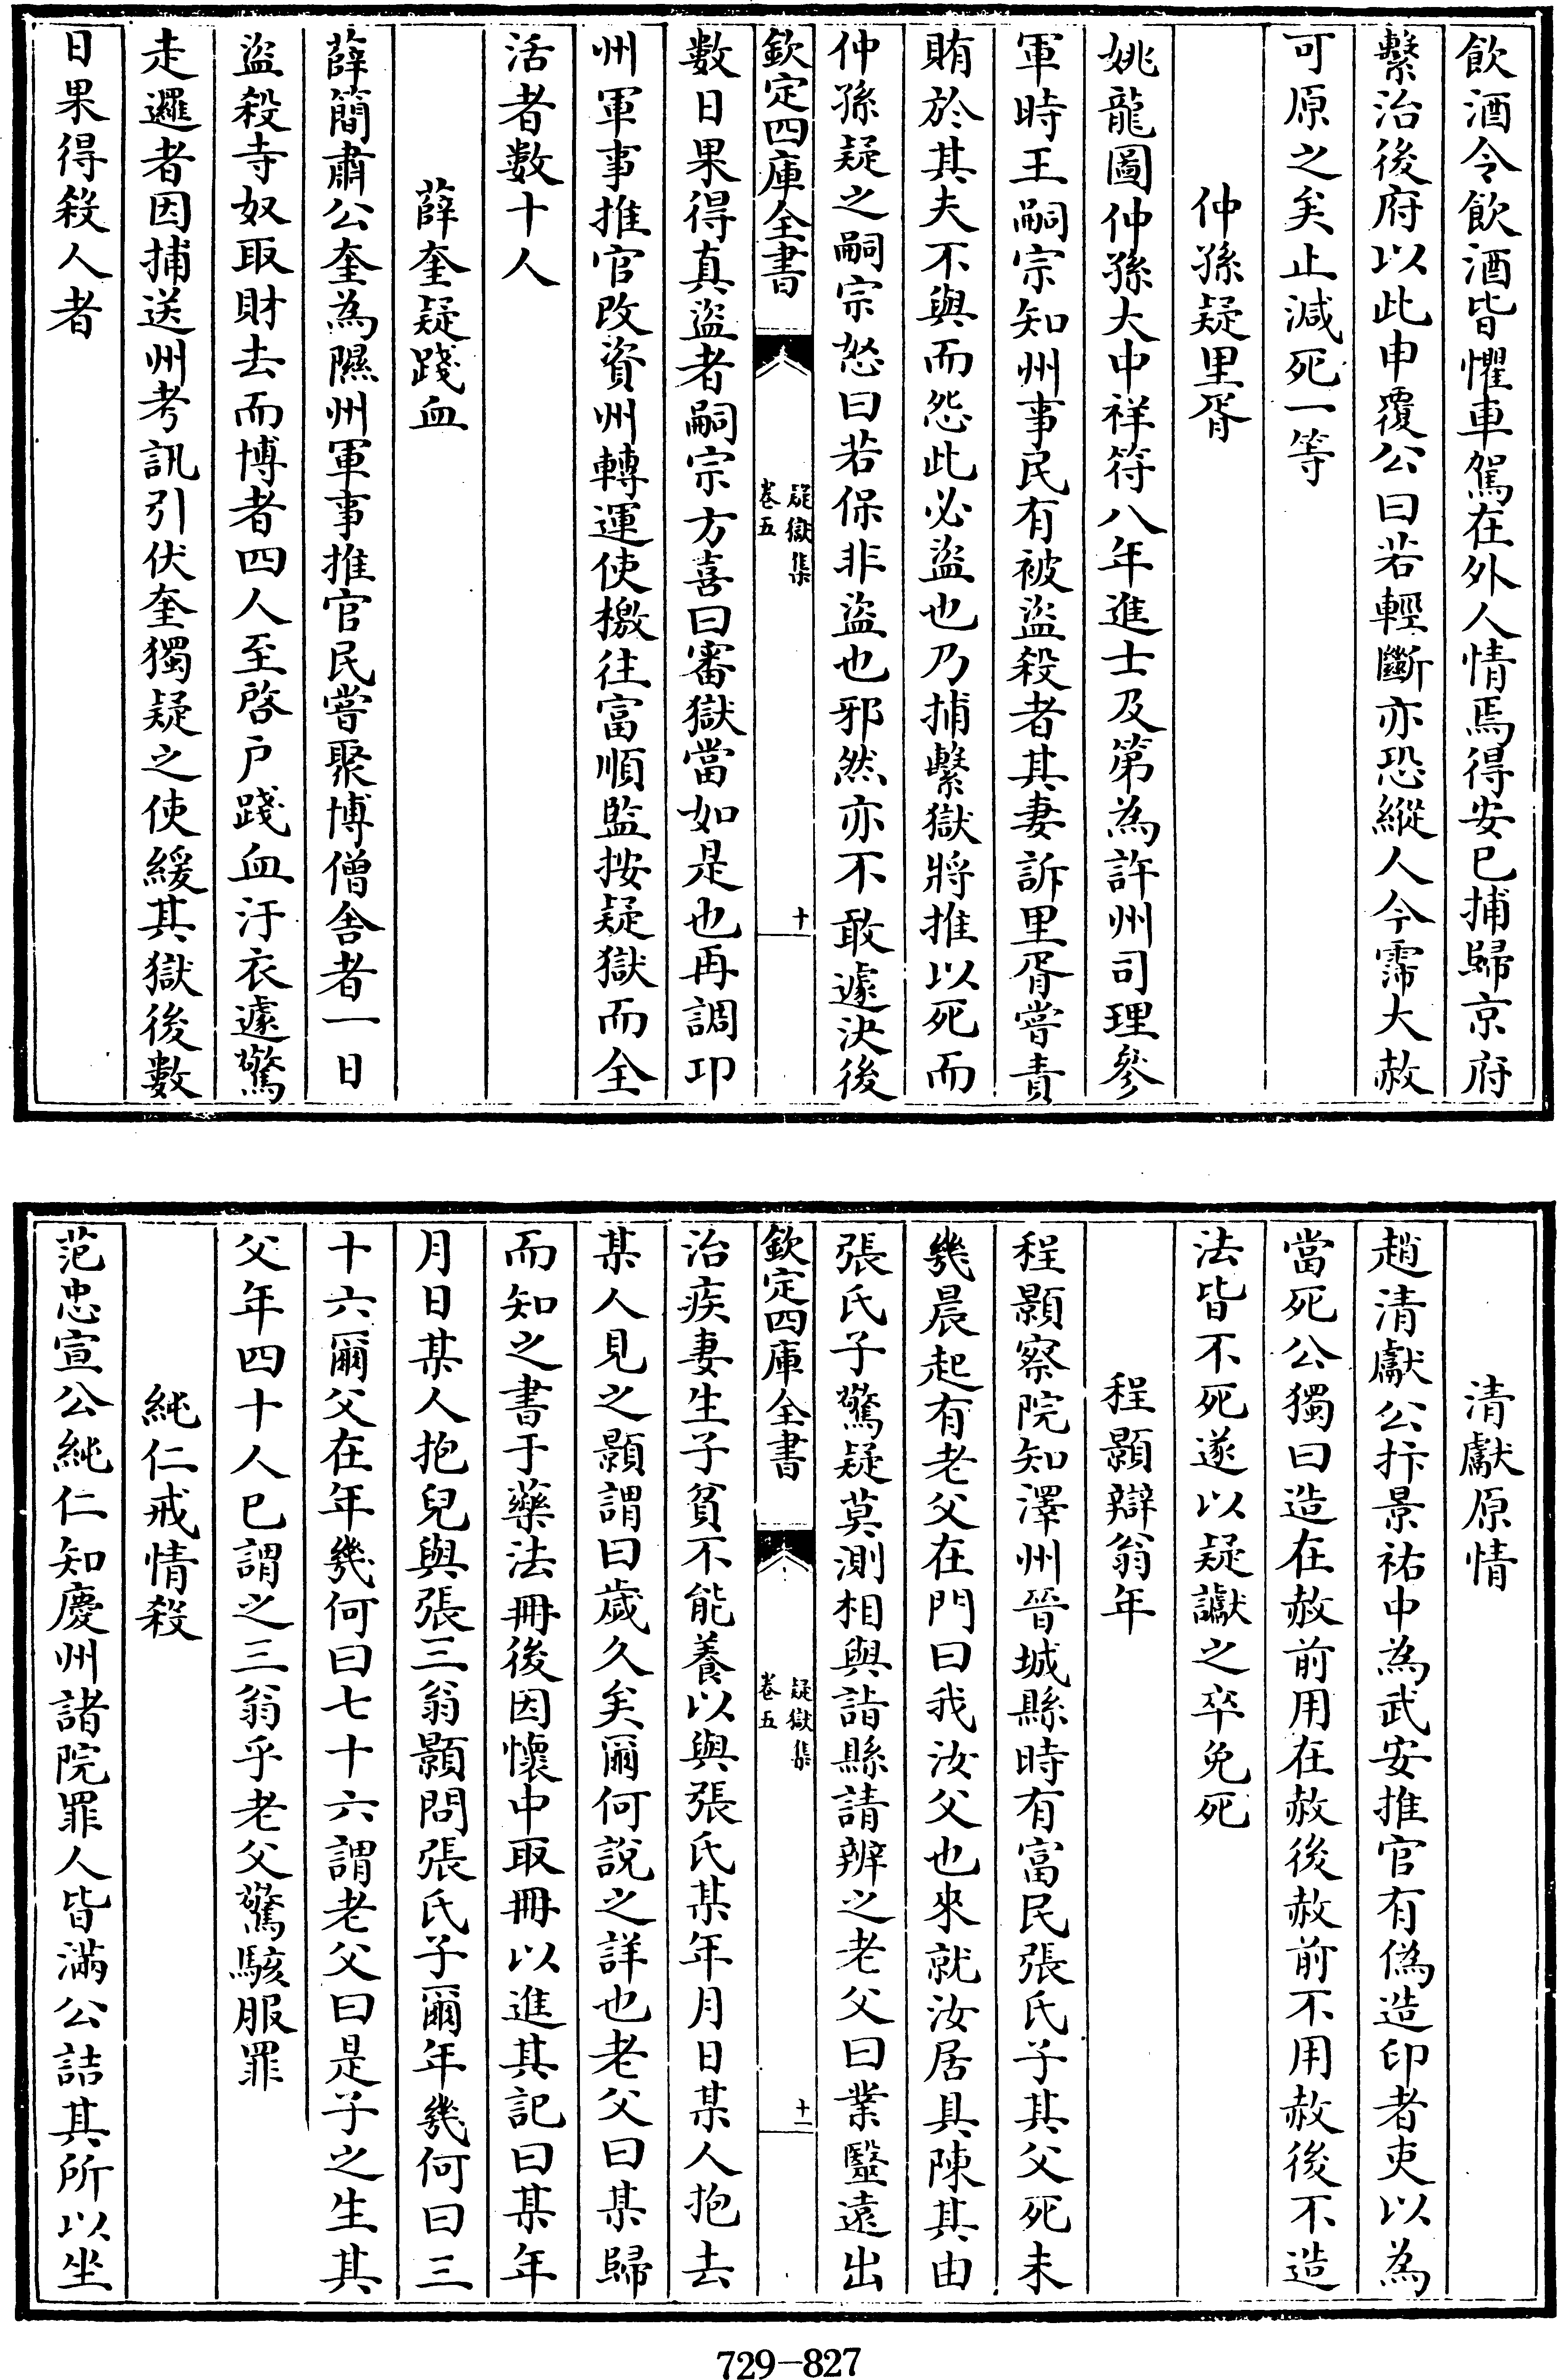 飲酒令飲酒皆懼車駕在外人情焉得安已捕歸京府
繫治後府以此申覆公曰若輕斷亦恐縱人今霈大赦
可原之矣止減死一等
仲孫疑里胥
姚龍圖仲孫大中祥符八年進士及第為許州司理參
軍時王嗣宗知州事民有被盜殺者其妻訴里胥嘗責
賄於其夫不與而怨此必盜也乃捕繫獄將推以死而
仲孫疑之嗣宗怒曰若保非盜也邪然亦不敢遽決後
欽定四庫全書
疑獄集
卷五
十
數日果得真盜者嗣宗方喜曰審獄當如是也再調卭
州軍事推官改資州轉運使檄往富順監按疑獄而全
活者數十人
薛奎疑踐血
薛簡肅公奎為隰州軍事推官民嘗聚博僧舍者一日
盜殺寺奴取財去而博者四人至啓户踐血汙衣遽驚
走邏者因捕送州考訊引伏奎獨疑之使緩其獄後數
日果得殺人者
清獻原情
趙清獻公抃景祐中為武安推官有偽造印者吏以為
當死公獨曰造在赦前用在赦後赦前不用赦後不造
法皆不死遂以疑讞之卒免死
程顥辯翁年
程顥察院知澤州晉城縣時有富民張氏子其父死未
幾晨起有老父在門曰我汝父也來就汝居具陳其由
張氏子驚疑莫測相與詣縣請辨之老父曰業毉遠出
欽定四庫全書
疑獄集
卷五
十一
治疾妻生子貧不能養以與張氏某年月日某人抱去
某人見之顥謂曰歲久矣爾何說之詳也老父曰某歸
而知之書于藥法冊後因懷中取冊以進其記曰某年
月日某人抱兒與張三翁顥問張氏子爾年幾何曰三
十六爾父在年幾何曰七十六謂老父曰是子之生其
父年四十人已謂之三翁乎老父驚駭服罪
純仁戒情殺
范忠宣公純仁知慶州諸院罪人皆滿公詰其所以坐
729-827